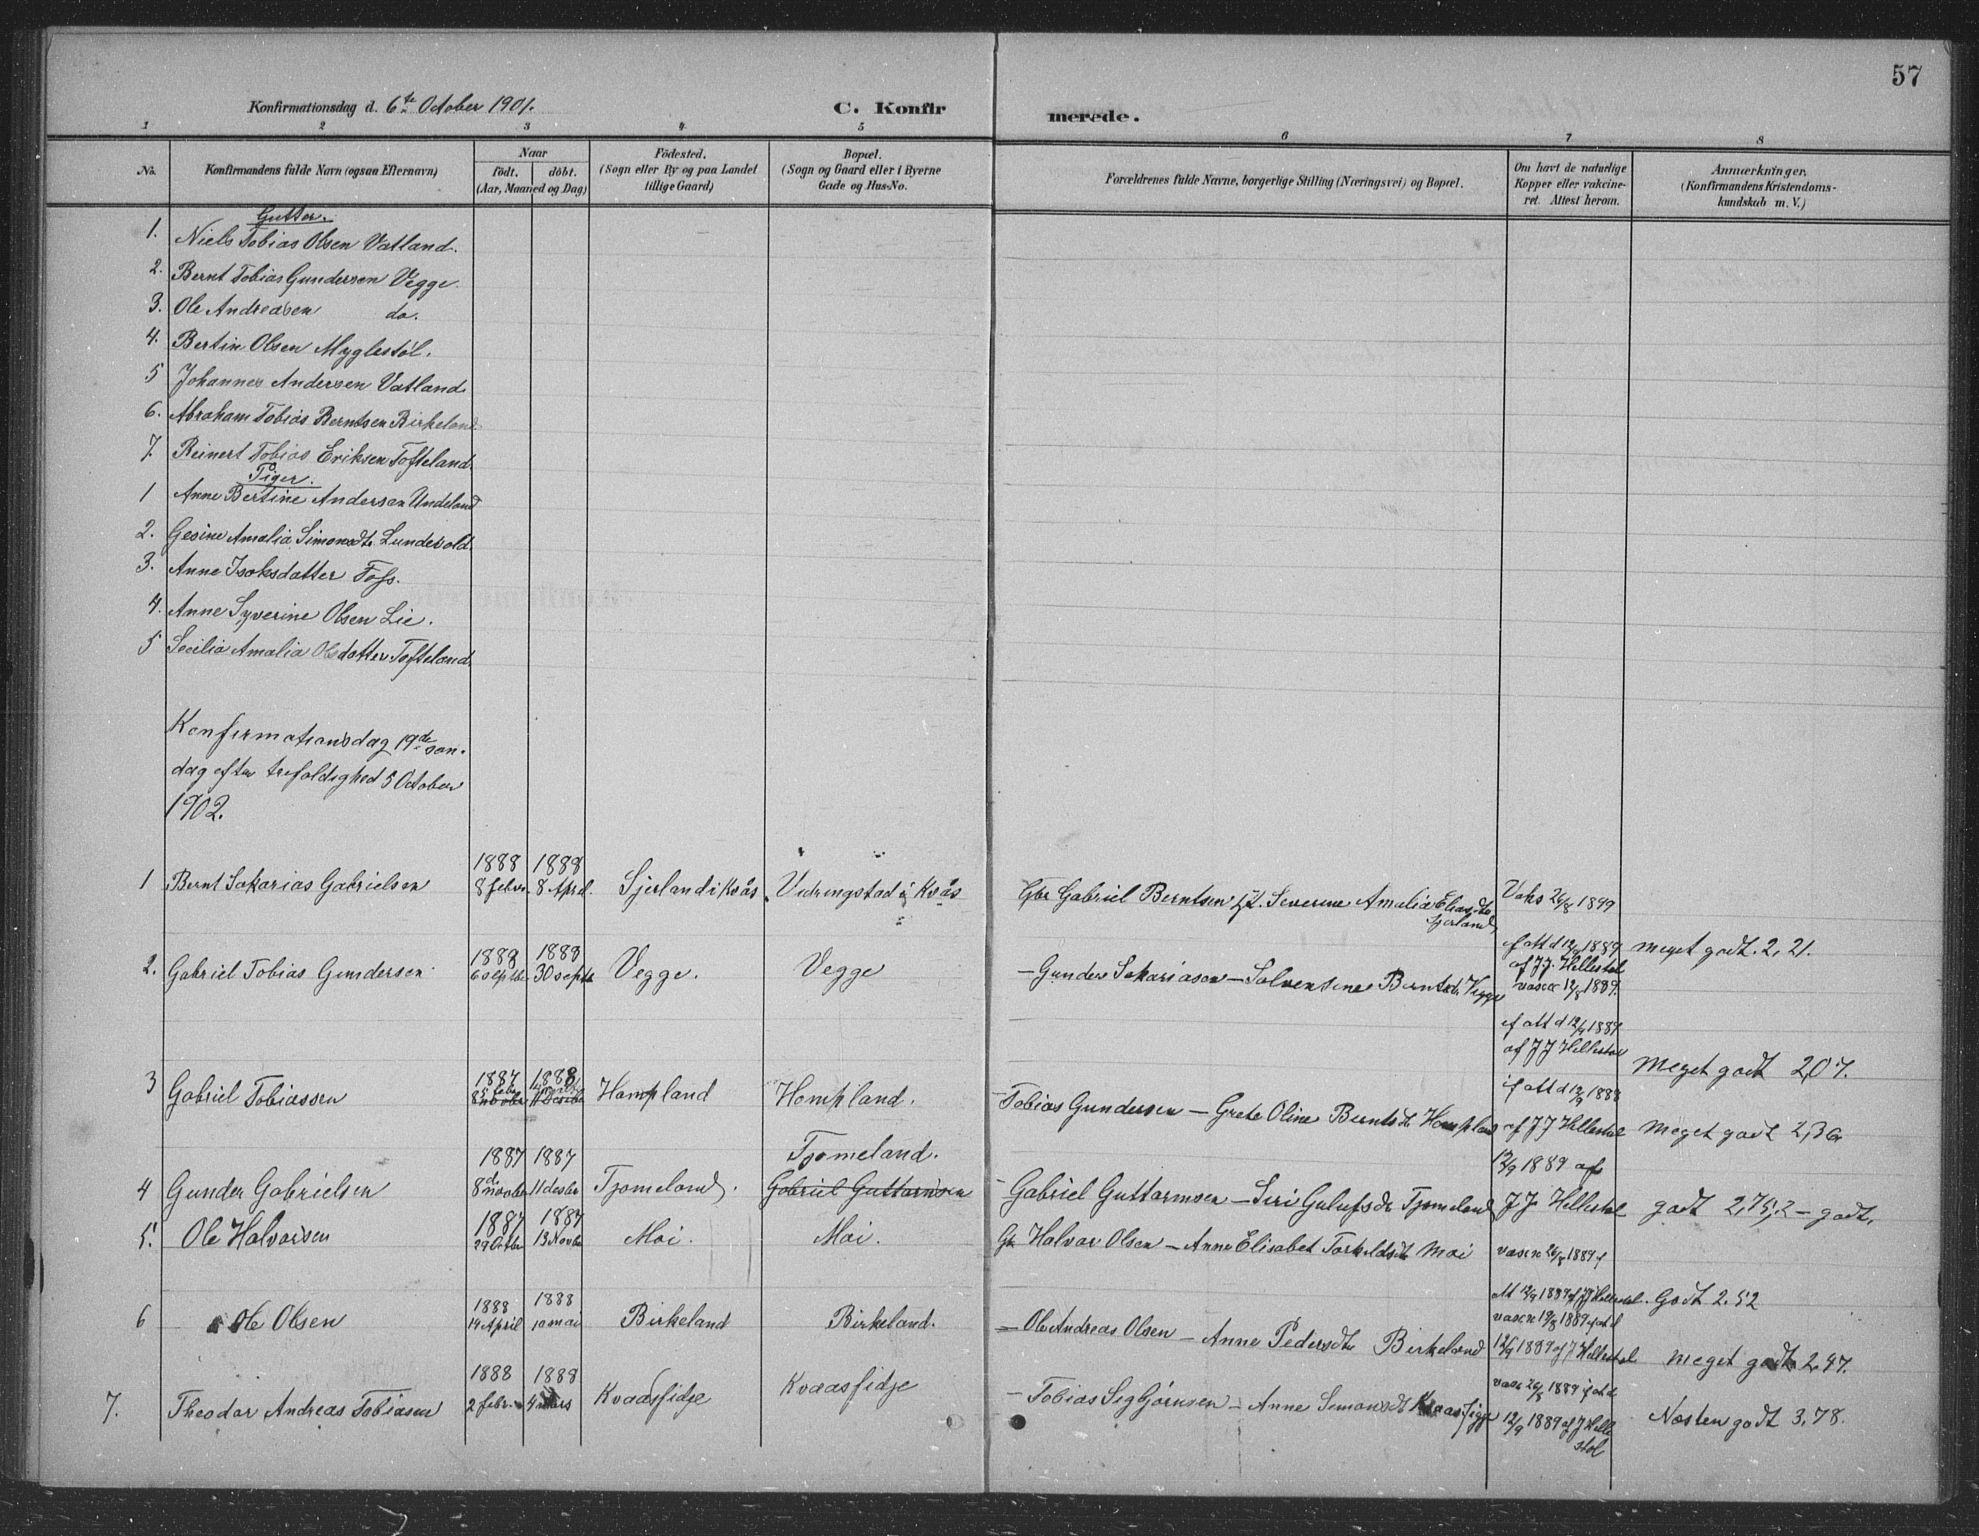 57
Konfirmationsdag d. 6te October 1901.
C. Konfirmerede.
1 2 3 4 5 6 7 8
No.
Konfirmandens fulde Navn (ogsaa Efternavn)
Naar
födt. döbt.
(Aar, Maaned og Dag)
Födested.
(Sogn eller By og paa Landet
tillige Gaard)
Bopæl.
(Sogn og Gaard eller i Byerne
Gade og Hus-No.
Forældrenes fulde Navne, borgerlige Stilling (Næringsvei) og Bopæl.
Om havt de naturlige
Kopper eller vakcine-
ret. Attest herom.
Anmærkninger.
(Konfirmandens Kristendoms-
kundskab m. V.)
Gutter.
1. Niels Tobias Olsen Vatland.
2. Bernt Tobias Gundersen Vegge.
3. Ole Andreasen do.
4. Bertin Olsen Myglestöl.
5 Johannes Andersen Vatland
6. Abraham Tobias Berntsen Birkeland
7. Reinert Tobias Eriksen Tofteland
Piger.
1 Anne Bertine Andersen Undeland
2. Gesine Amalia Simonsdtr Lundevold
3. Anne Isaksdatter Foss.
4. Anne Syverine Olsen Lie.
5 Secilia Amalia Olsdatter Tofteland
Konfirmationsdag 19de søn-
dag efter trefoldighed 5 October
1902.
1 Bernt Sakarias Gabrielsen 1888 8 febr. 1888 8 April. Sjerland i Kvås Vedringstad i Kvås Gbr Gabriel Berntsen Severine Amalia Eliasdtr Sjerland Vaks 26/8 1899
if att d 12/9 1889
af J J. Hellestøl
meget godt. 2,21.
2. Gabriel Tobias Gundersen 1888 6 septbr 1888 30 septbr Vegge. Vegge – Gunder Sakariasen – Solventine Berntsdtr Vegge
if att d 12/9 1889
af J J Hellestøl
Meget godt 2,07.
3 Gabriel Tobiassen 1887 1888 Hompland Hompland. – Tobias Gundersen – Grete Oline Berntsdtr Hompland
if att d 12/9 1888
af J J Hellestøl
Meget godt 2,36
4 Gunder Gabrielsen 1887 1887 11 desbr Tjomeland. Tjomeland.
Gabriel Guttormsen
– Gabriel Guttormsen – Siri Gulufsdtr Tjomeland
12/9 1889 af
J J Hellestøl
godt 2,75,2 – godt,
5. Ole Halvorsen 1887 29 Octbr 1887 13 Novbr Moi. Moi. Halvor Olsen – Anne Elisabet Torkeldsdtr Moi
vaxcn 26/8 1889 if
att 12/9 1889 af J J Hellestøl.
Godt 2.52
6 Ole Olsen 1888 14 April 1888 10 mai Birkeland Birkeland. – Ole Andreas Olsen – Anne Pedersdtr Birkeland
12/9 1889 af J Hellestøl
meget godt 2,47.
7. Theodor Andreas Tobiasen 1888 2 febr. 1888 4 mars Kvaasfidje Kvaasfidje – Tobias Segbjørnsen – Anne Simonsdt Kvaasfigge
vaxc 26/8 1889 if att d
12/9 1889 af J Helle
støl
Næsten godt 3,78.